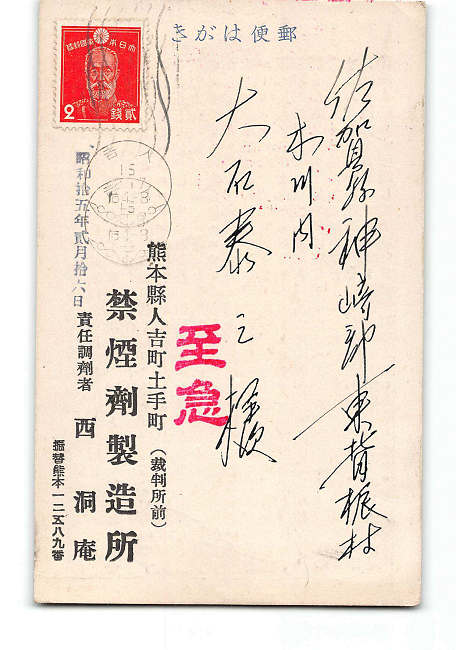 郵便はがき
大日本帝國郵便
貳錢
2
佐賀縣神崎郡東脊振村
大石泰三様
至急
昭和拾五年貳月拾六日
熊本縣人吉町土手町(裁判所前)
禁煙劑製造所
責任調劑者 西洞庵
振替熊本一二五八九番